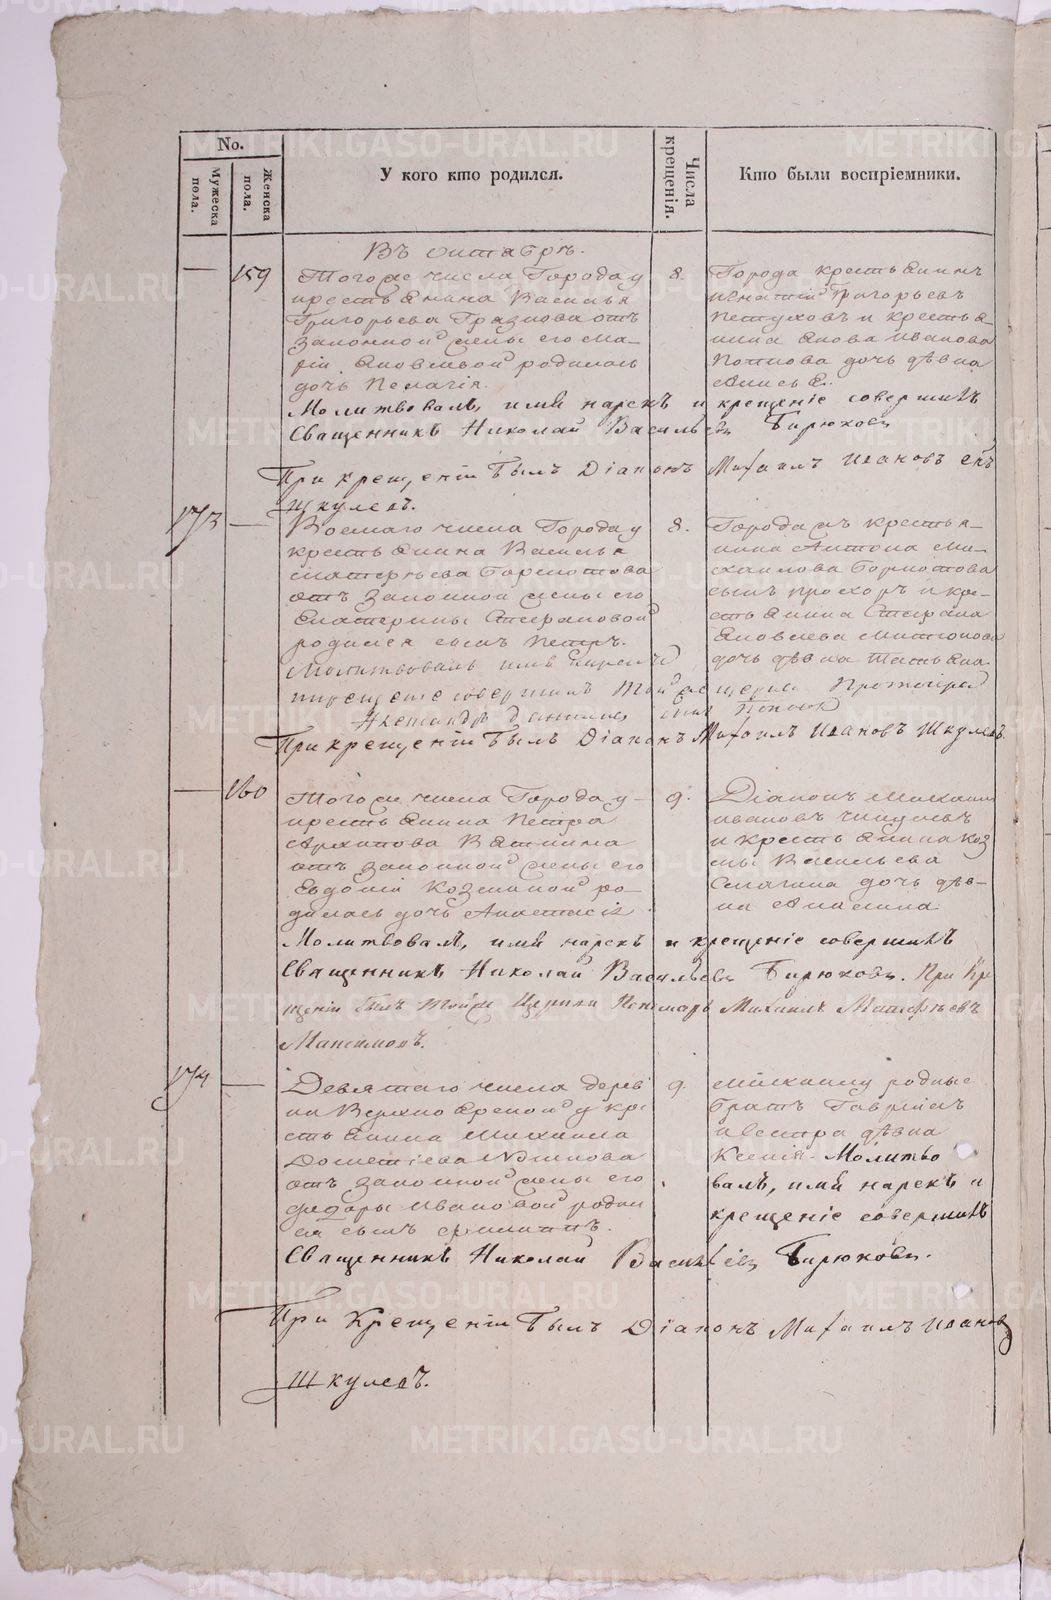 No.
Мужеска пола.
Женска пола.
У кого кто родился.
Числа крещенія.
Кто были воспріемники.
Въ октябрѣ.
159
Того же числа Города у
крестьянина Василья
Григорьева Грязнова отъ
законной жены его Ма-
ріи Яковлевой родилась
дочь Пелагія.
8.
Города крестьянинъ
Игнатій Григорьевъ
Петуховъ и крестья-
нина Якова Иванова
Попкова дочь дѣвка
Анисья.
Молитвовалъ, имя нарекъ и крещеніе совершилъ
Священникъ Николай Васильевъ Бирюковъ
При крещеніи Былъ Діаконъ Михаилъ Ивановъ Снъ
Шкулевъ.
173
Восмаго числа Города у
крестьянина Василья
отъ законной жены его
Екатерины Стефановой
родился сынъ Петръ.
8.
Города жъ крестья-
нина Антона Ми-
хаилова
сынъ Прохоръ и кре-
стьянина Стефана
Яковлева
дочь дѣвка Татьяна.
Молитвовалъ имя нарекъ
и крещеніе совершилъ Той же церкви Протоіерей
Александръ
При крещеніи Былъ Діаконъ Михаилъ Ивановъ Шкулевъ.
160
Того же числа Города у
крестьянина Петра
Архипова Вяткина
отъ законной жены его
Евдокіи Козминой ро-
дилась дочь Анастасія
9.
Діаконъ Михаилъ
Ивановъ Шкулевъ
и крестьянина Коз
мы Васильева
дочь дѣв-
ка
Молитвовалъ, имя нарекъ и крещеніе совершилъ
Священникъ Николай Васильевъ Бирюковъ. При Кре
щеніи Былъ Тойже Церкви Пономарь Михаилъ Матфѣевъ
Максимовъ.
174
Девятаго числа дерев
ни у кре
стьянина Михаила
Дометіева
отъ законной жены его
Федоры Ивановой родил
ся сынъ Филиппъ.
9.
Михаилу родные
братъ Гавріилъ
и сестра дѣвка
Ксенія. Молитво
валъ, имя нарекъ и
крещеніе совершилъ
Священникъ Николай Васильевъ Бирюковъ.
При Крещеніи Былъ Діаконъ Михаилъ Ивановъ
Шкулевъ.
METRIKI.GASO-URAL.RU